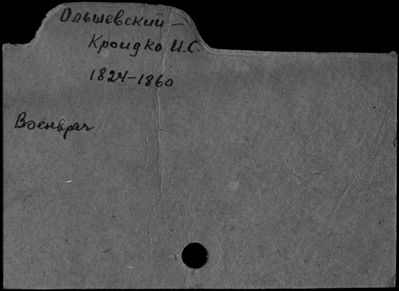 Ольшевский –
Кроидко И.С.
1824–1860
Военврач